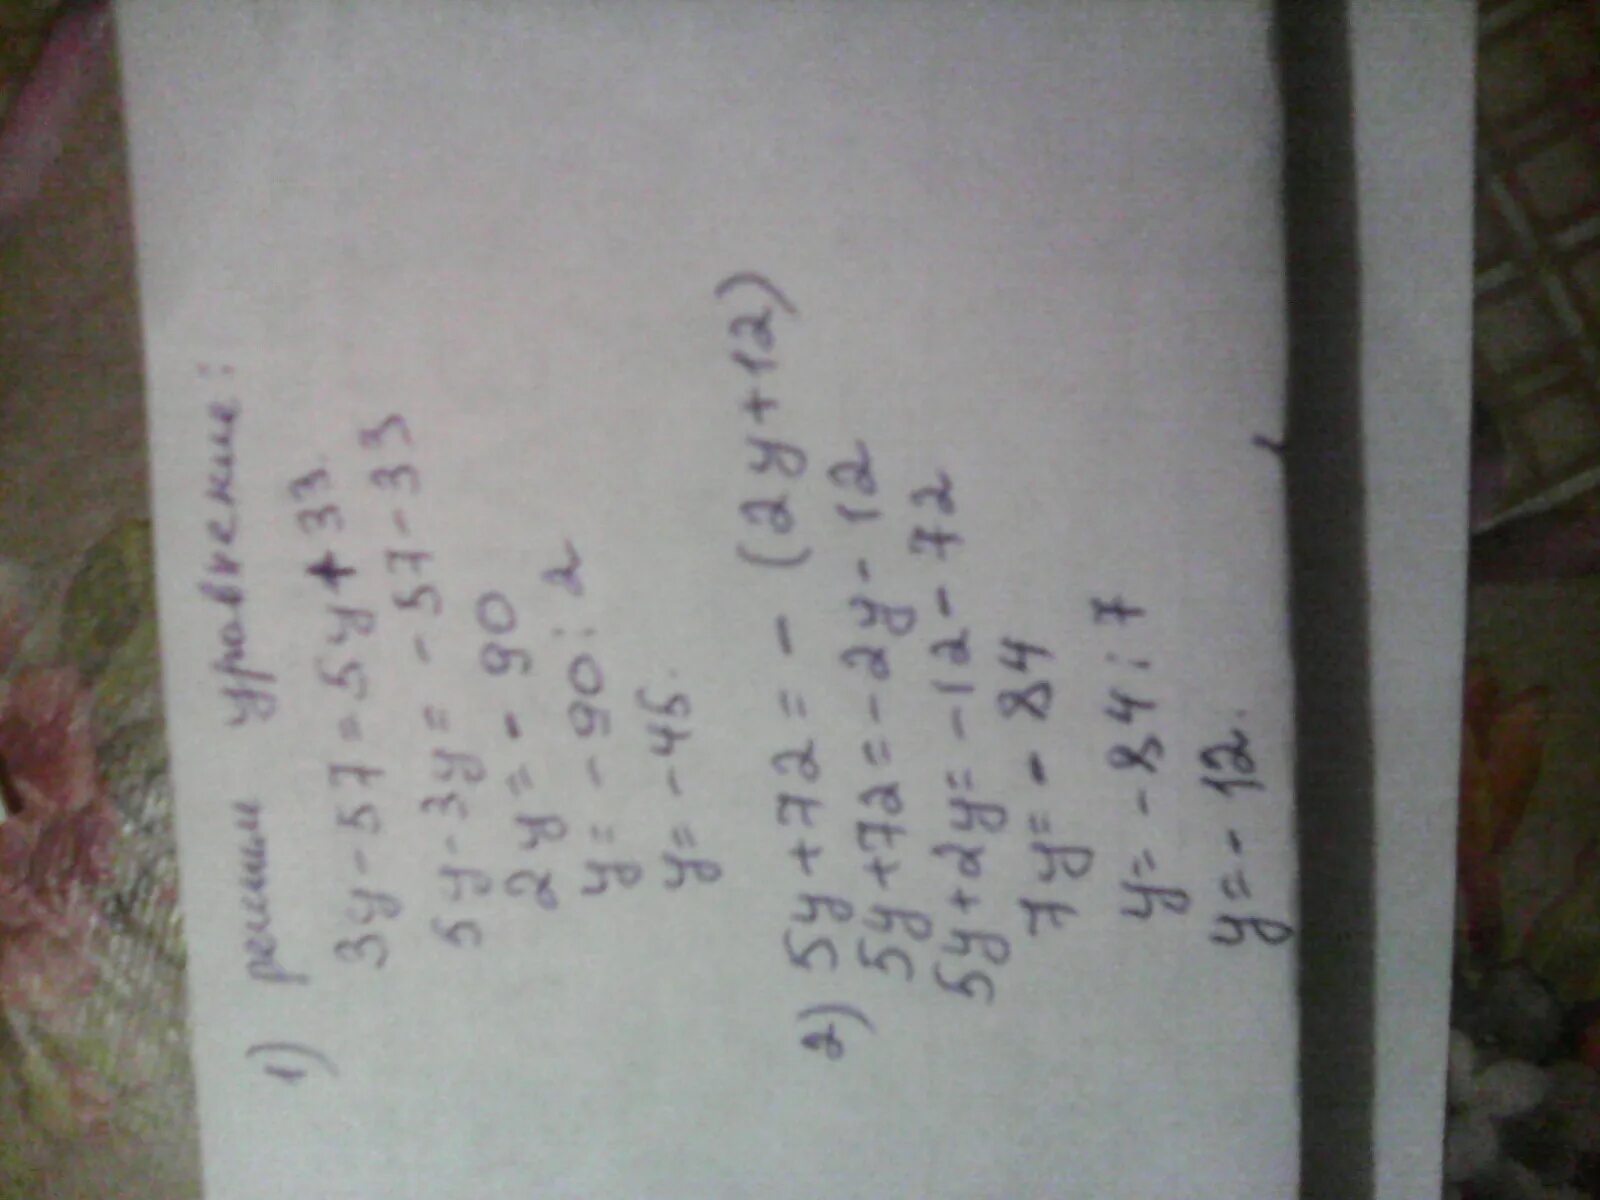 1) решим уравнение:
3y - 57 = 5y + 33
5y - 3y = - 57 - 33
2y = - 90
y = - 90 : 2
y = - 45.
2) 5y + 72 = - (2y + 12)
5y + 72 = - 2y - 12
5y + 2y = - 12 - 72
7y = - 84
y = - 84 : 7
y = - 12.